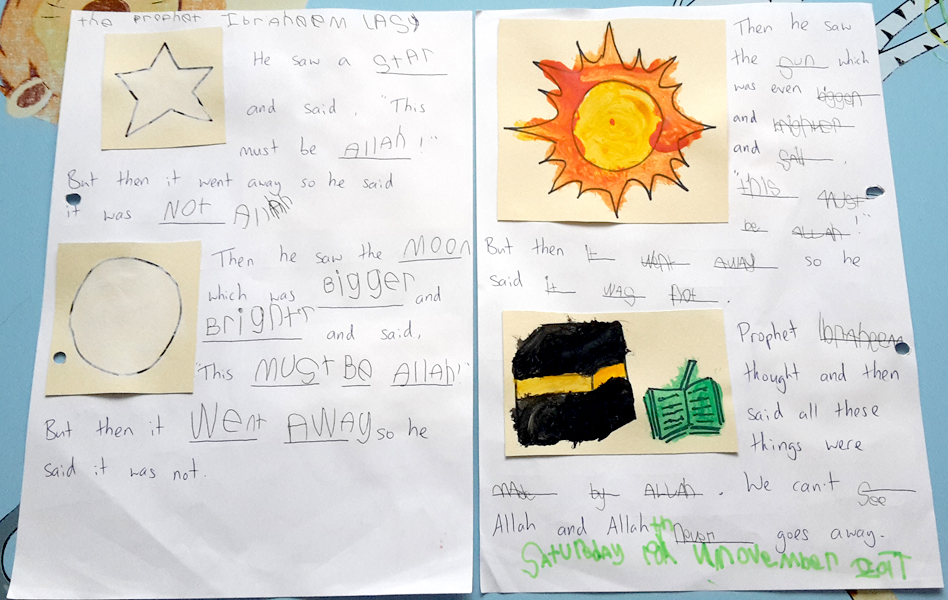 the prophet Ibraheem (AS)
He saw a StAr
and said, "This
must be AllAh!"
But then it went away so he said
it was NOt AllAh
Then he saw the MOON
which was Bigger and
Brightr and said,
"This MUSt BE AllAh!"
But then it Went AWAy so he
said it was not.
Then he saw
the sun which
was even bigger
and brighter
and Said.
"this must
be ALLAH!"
But then It want AWAY so he
said It was not.
Prophet Ibraheem
thought and then
said all these
things were
not by ALLAH. We can't See
Allah and Allah never goes away.
SAtURday 18th November